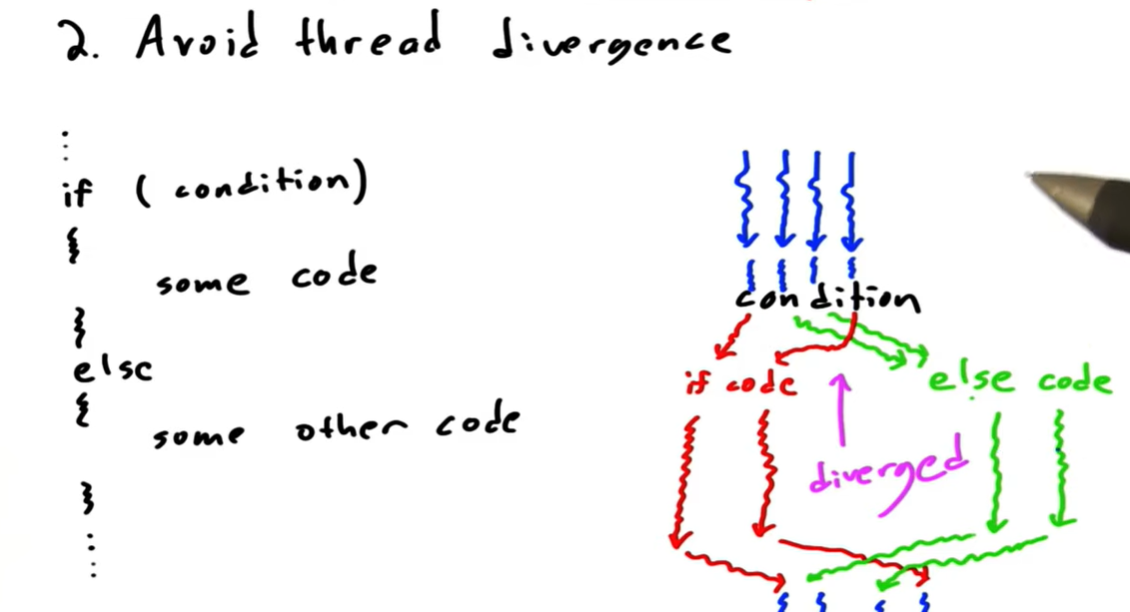 2. Avoid thread divergence
...
if (condition)
{
some code
}
else
{
some other code
}
....
condition
if code
else code
diverged